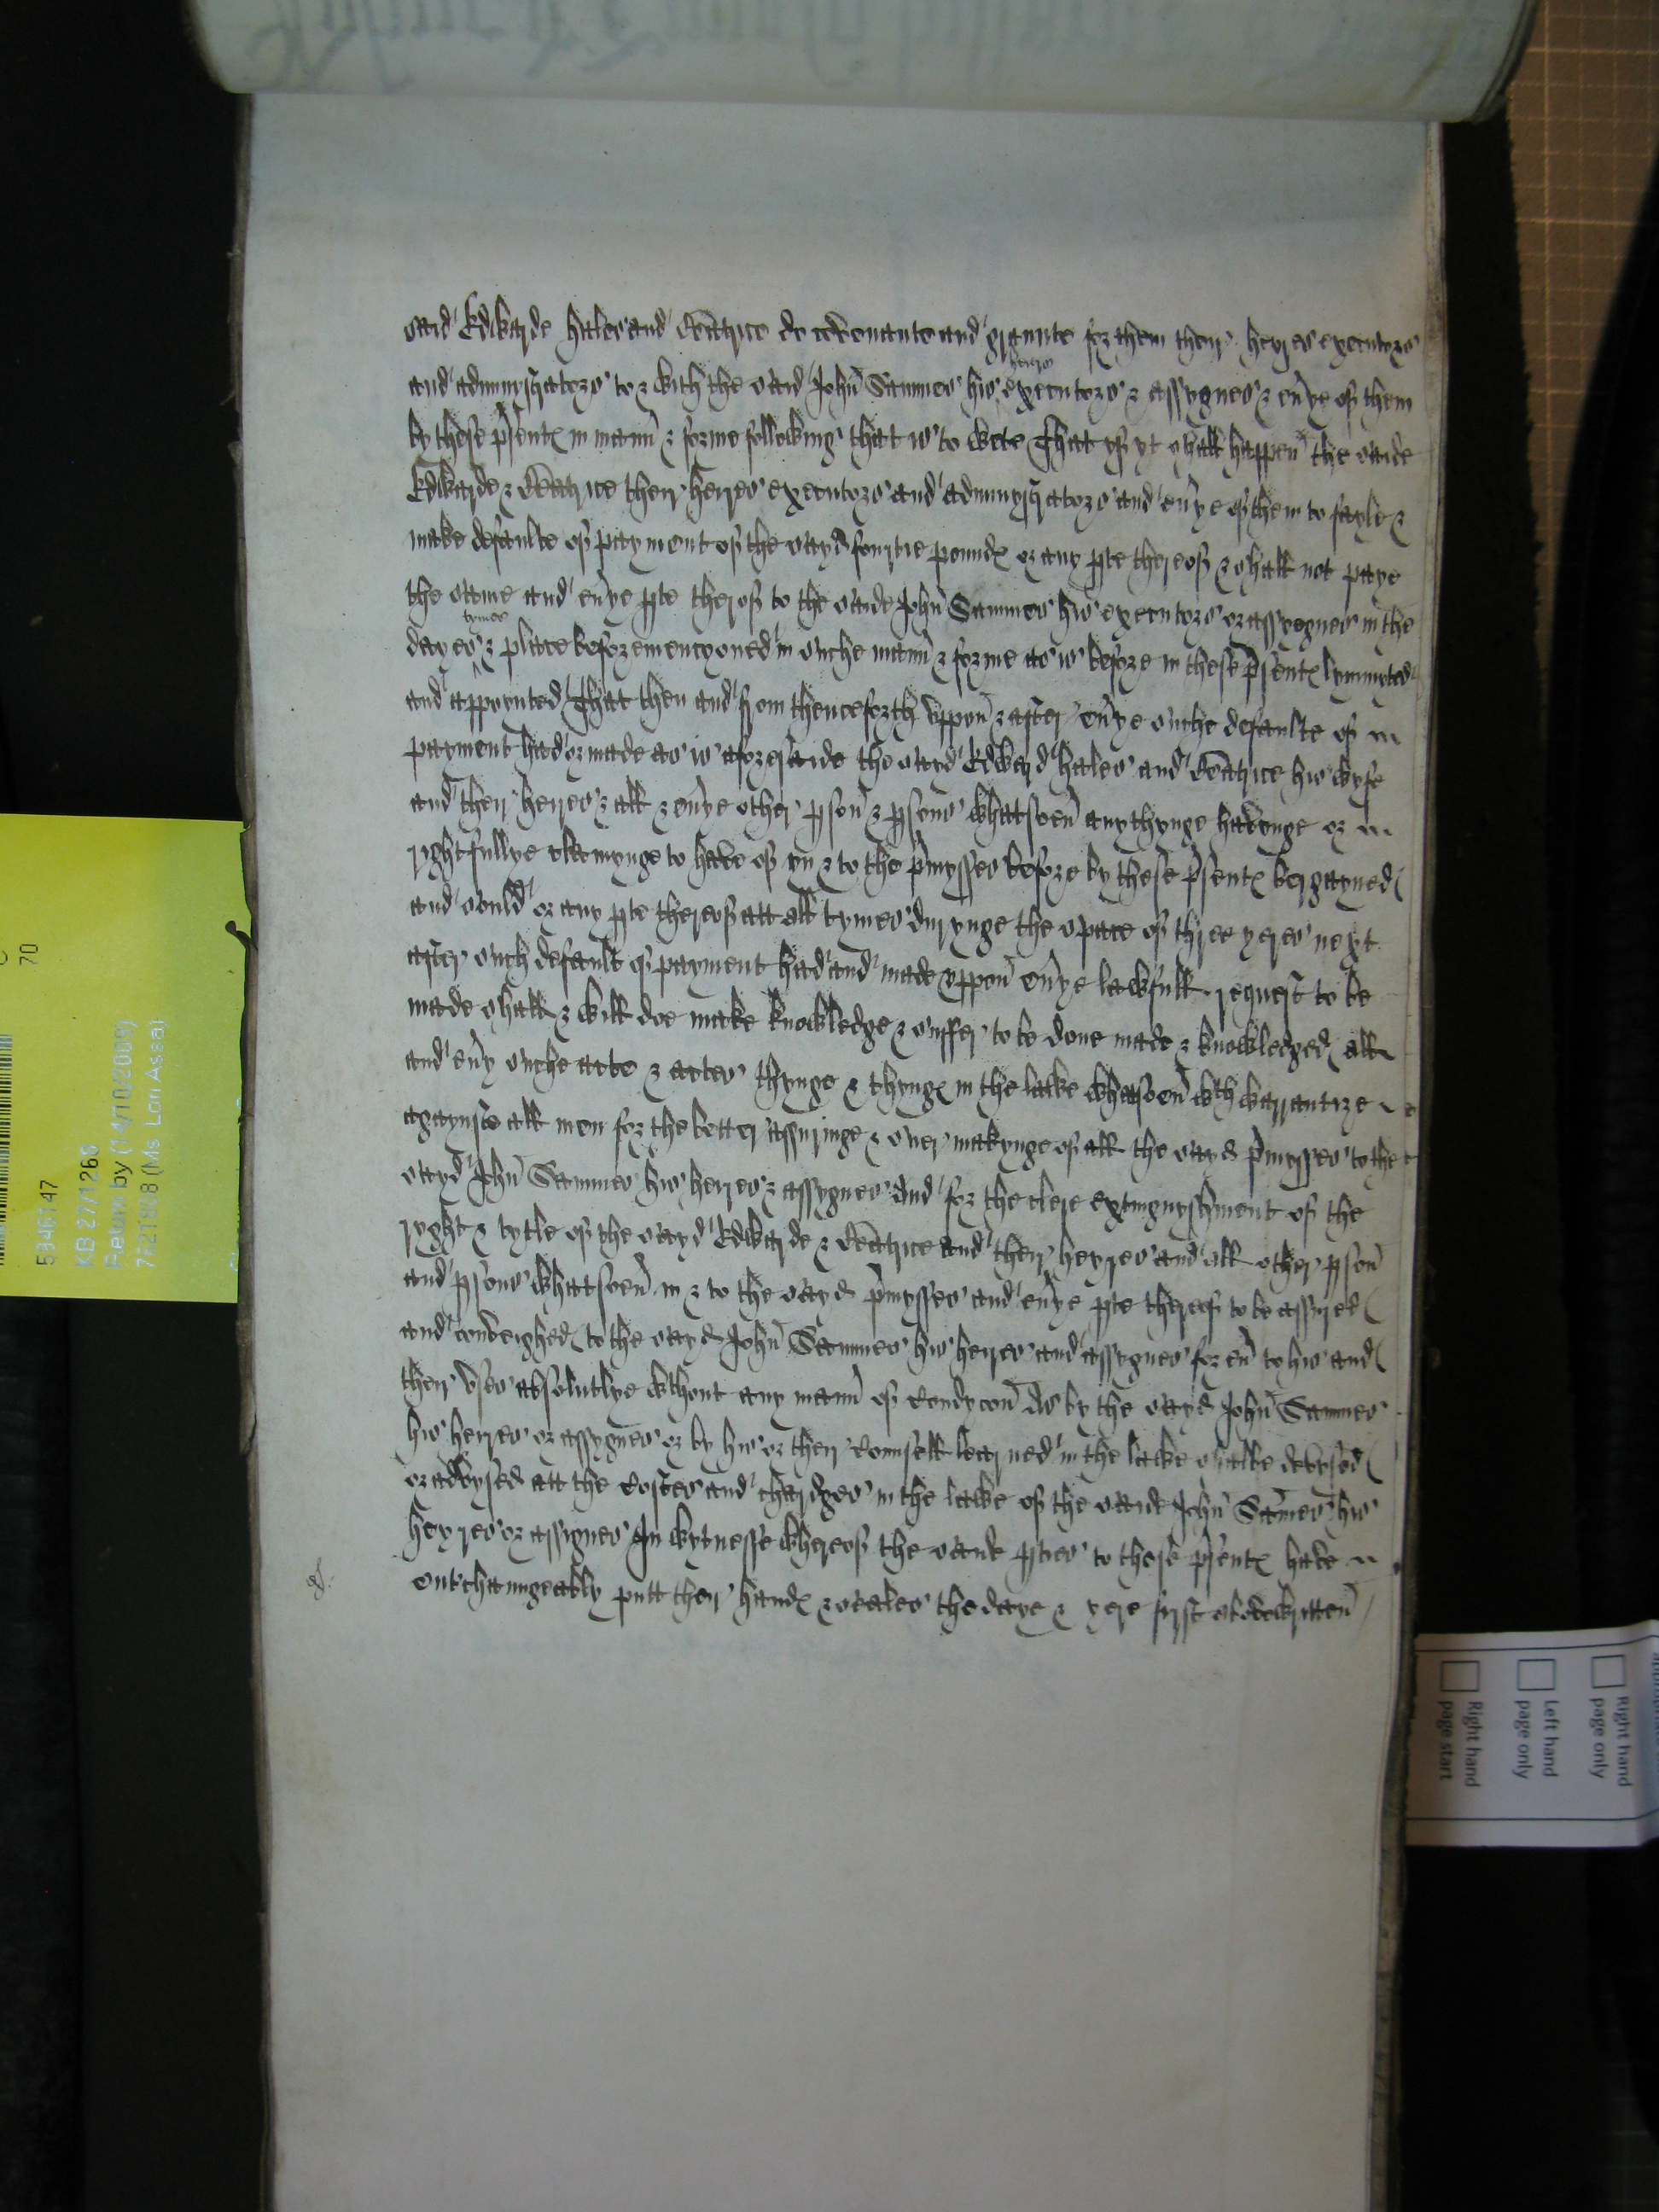 said Edwarde hales and Beatrice do covenante and graunte for them their heyres executors
and admynystrators to & with the said John Sammes his heires executors & assygnes & eu'ye of them
by these p'sent in mann' & forme following that is to wete That yf yt shall happen the saide
Edwarde & Beatrice their heires executors and admynystrators and eu'ye of them to fayle &
make defaulte of payment of the sayd fourtie pound or any pte thereof & shall not paye
the same and eu'ye pte therof to the saide John Sammes his executors or assygnes in the
dayes tymes & place beforemencyoned in suche mann' & forme as is before in these p'sent lymmyted
and appoynted That then and from thenceforth uppon & after eu'ye suche defaulte of
payment had or made as is aforesaide the sayd Edward hales and Beatrice his wyfe
and their heires & all & eu'ye other pson & psons whatsoeu' anythynge havenge or
rightfullye claimynge to have of yn & to the p'mysses before by these p'sent bargayned
and sould or any pte thereof att all tymes durynge the space of three yeres next
after such default of payment had and made uppon eu'ye lawfull request to be
made shall & will doe make knowledge & suffer to be done made & knowledged all
and eu'y suche acte & actes thynge & thyng in the lawe whatsoeu' wth warrantize
agaynste all men for the better assuringe & suer makynge of all the sayd p'mysses to the
sayd John Sammes his heires & assygnes And for the clere extinguyshment of the
ryght & tytle of the sayd Edwarde & Beatrice and their heyres and all other pson
and psons whatsoeu' in & to the sayd p'mysses and eu'ye pte thereof to be assured
and conveighed to the sayd John Sammes his heires and assygnes for eu' to his and
their uses absolutlye wthout any mann' of condycon As by the sayd John Sammes
his heires or assygnes or by his or their counsell learned in the lawe shalbe devysed
or advysed att the costes and chardges in the lawe of the saide John Sames his
heyres or assignes In wytnesse whereof the saide pties to these p'sent have
entrchaungeably putt their hand & seales the daye & yere fyrst abovewritten
70
5346147
KB 27/1265
Return by (14/10/2009)
7621808 (Ms Lori Assa)
Right hand
page only
Left hand
page only
Right hand
page start